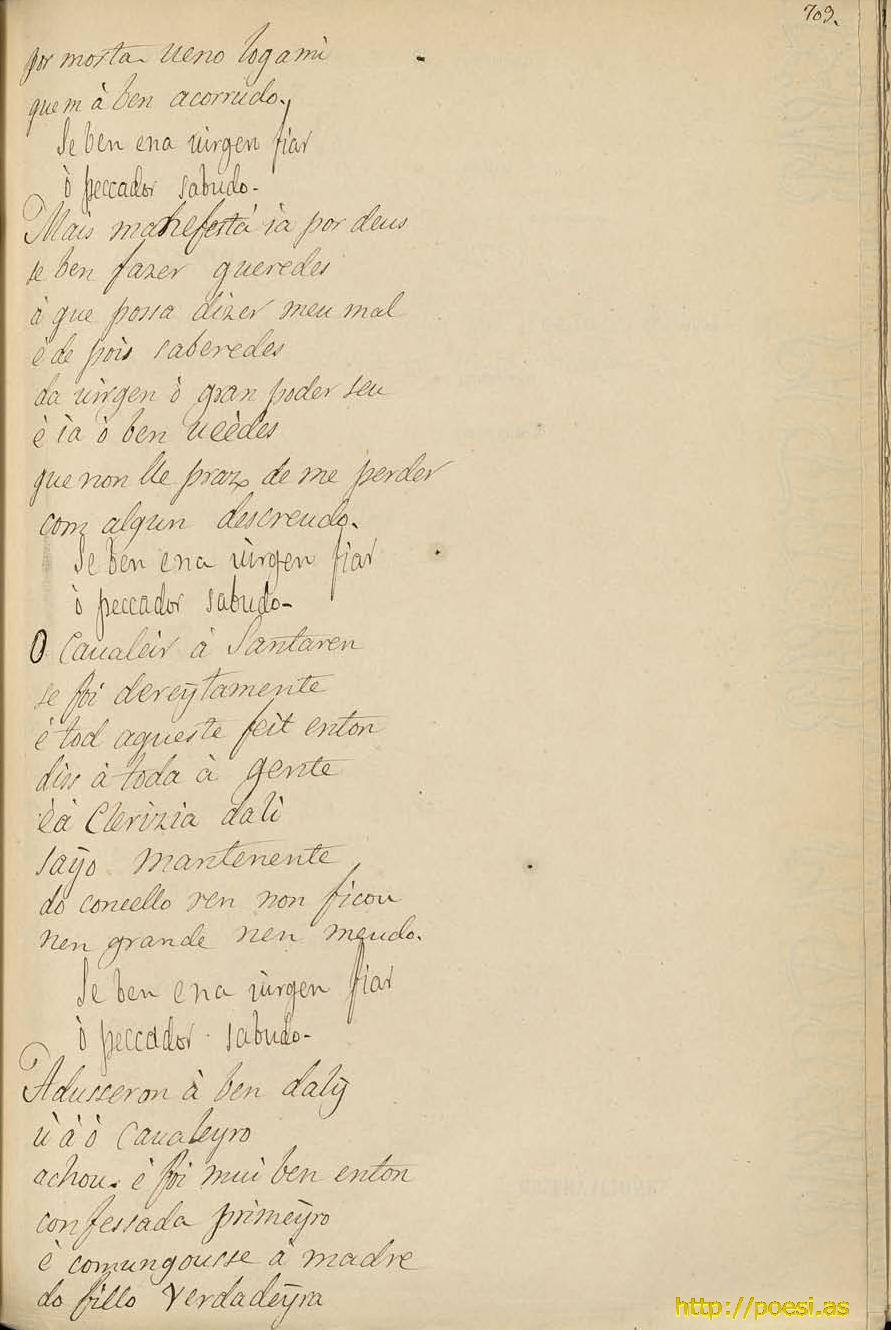 709.
por morta. ueno logami
quem à ben acorrudo.
Se ben ena uirgen fiar
ò peccador sabudo-
Mais manefestá ia por deus
se ben fazer queredes
à que possa dizer meu mal
è de pois saberedes
da uirgen ò gran poder seu
è ia ò ben ueèdes
que non lle praz de me perder
com algun descreudo.
Se ben ena uirgen fiar
ò peccador sabudo-
O Caualeir à Santaren
se foi dereÿtamente
è tod aqueste feit enton
diss à toda à gente
èà Clerizia dali
saÿo mantenente
do concello ren non ficou
nen grande nen meudo.
Se ben ena uirgen fiar
ò peccador sabudo-
Adusseron à ben dalÿ
ù à ò Caualeyro
achou. è foi mui ben enton
confessada primeÿro
è comungousse à madre
do fillo Verdadeÿra
http://poesi.as